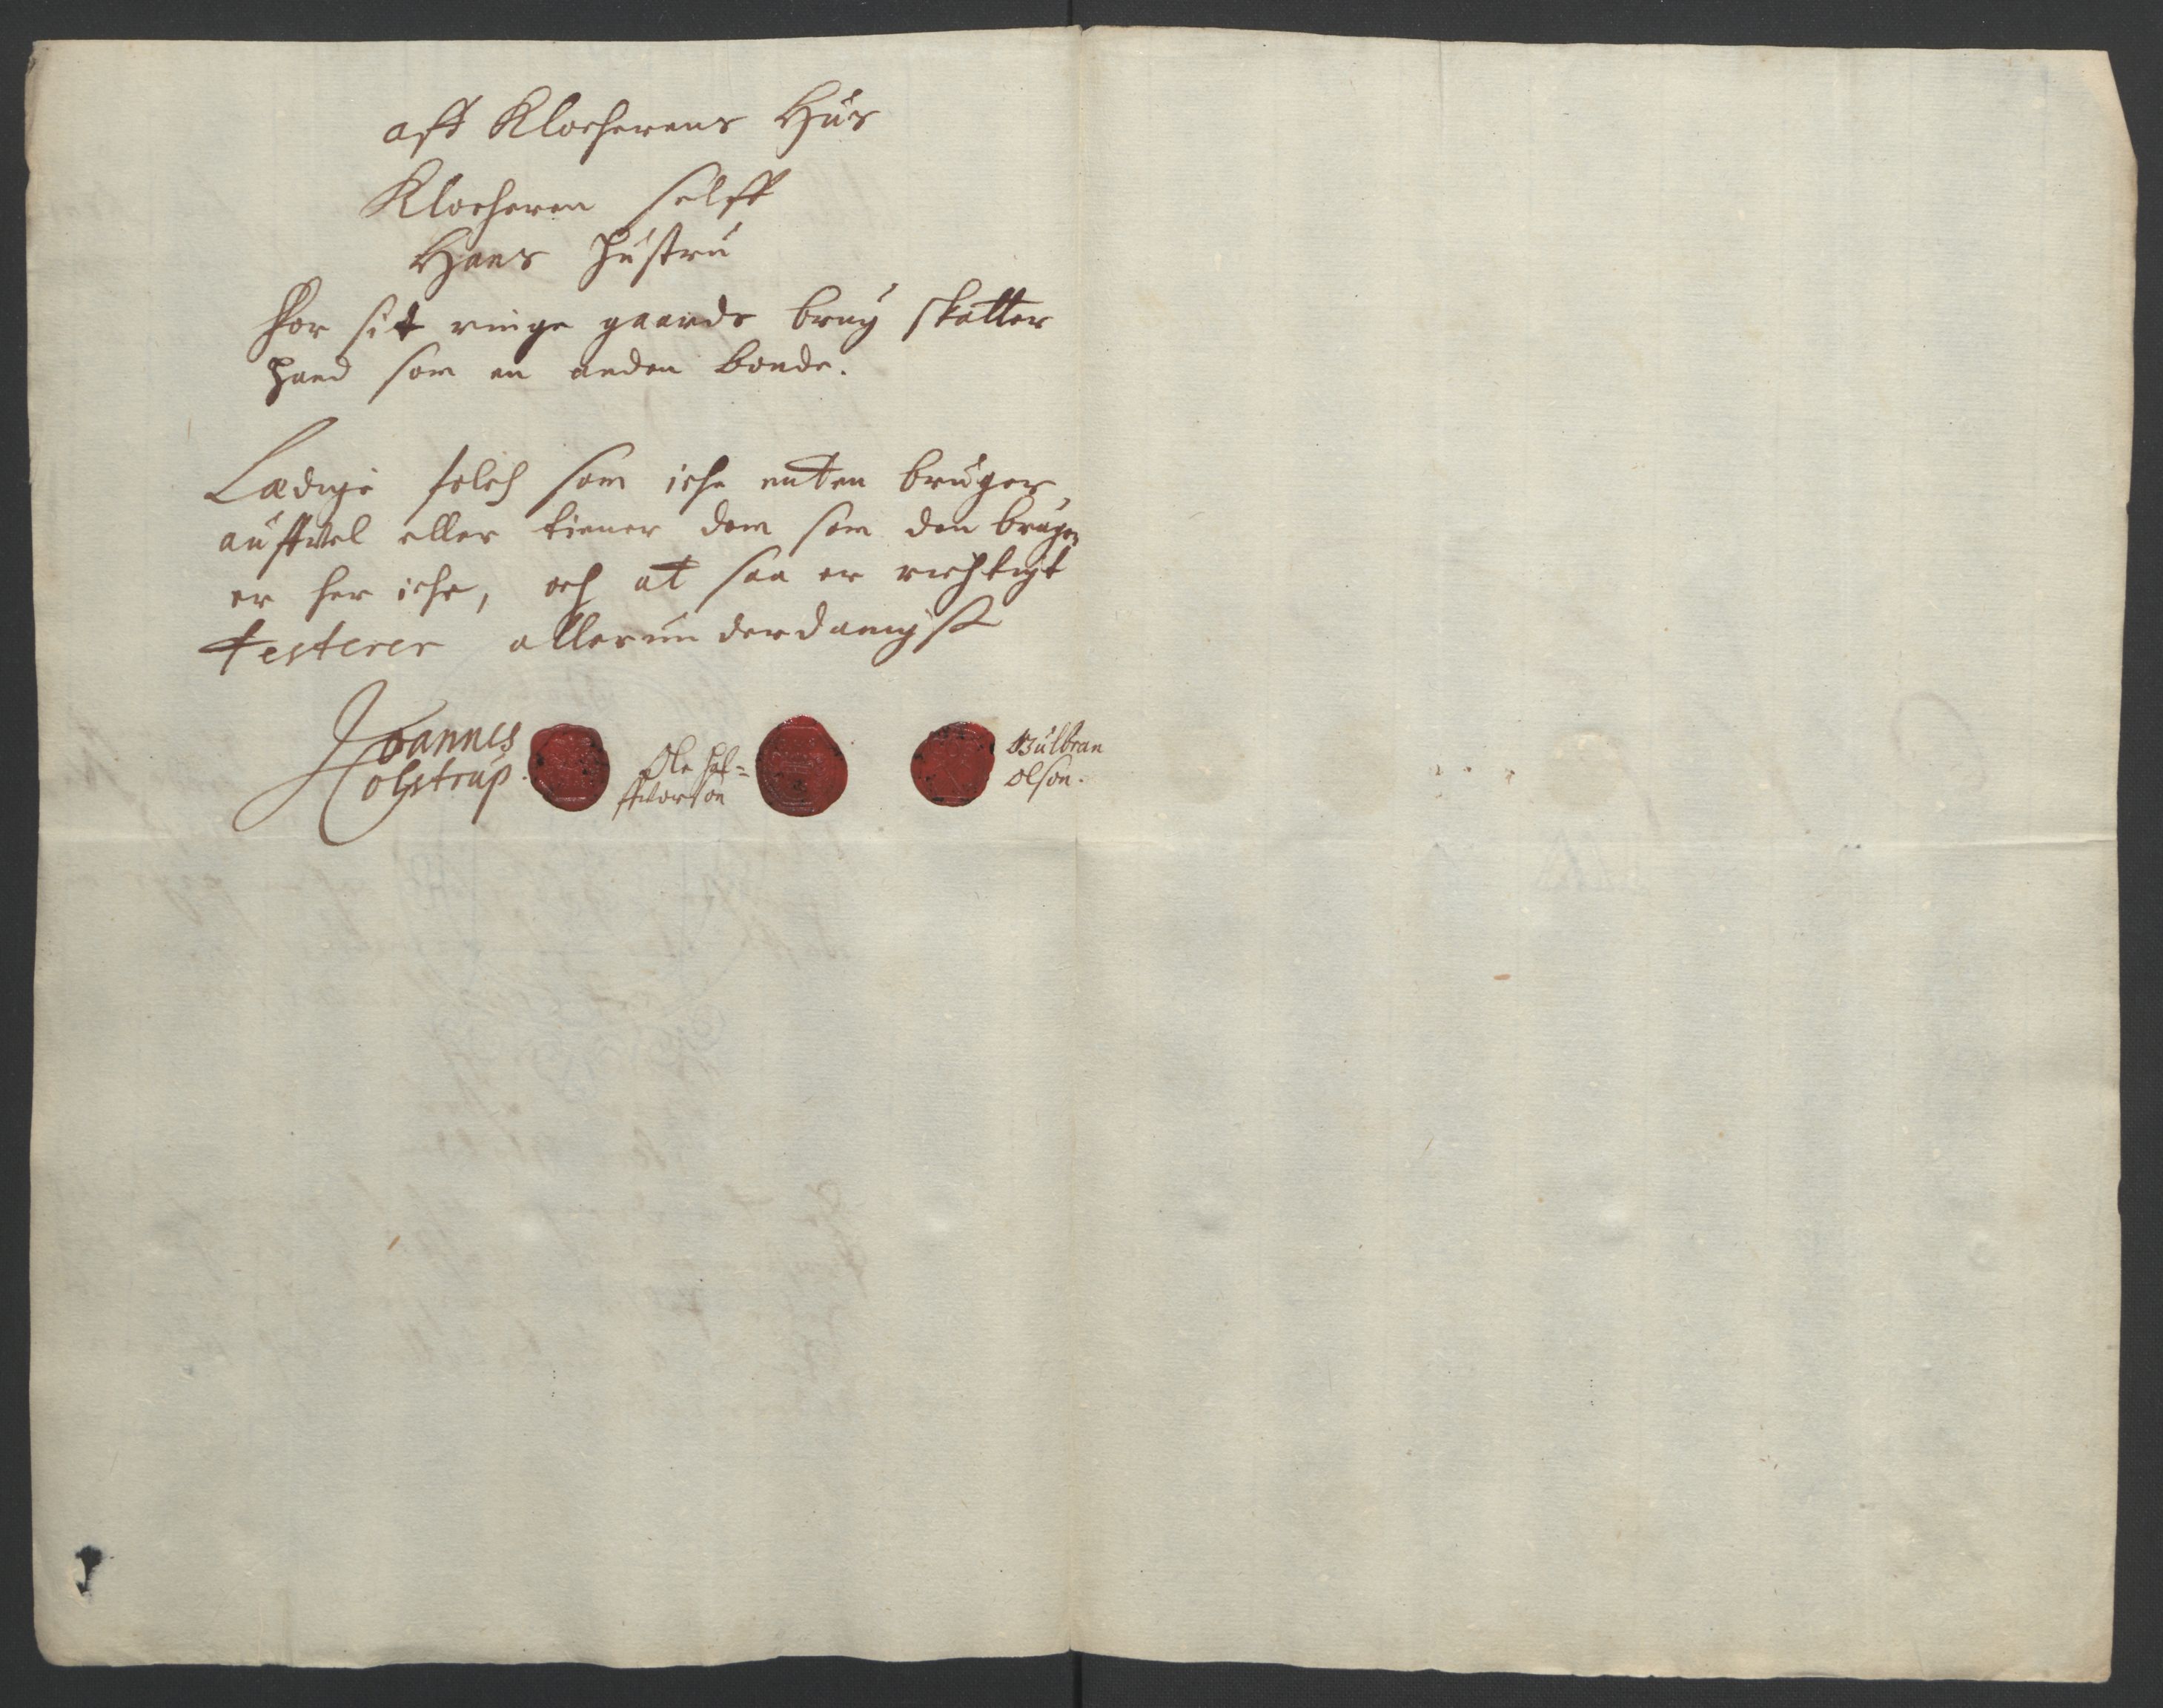 aff Klocherens Hus
Klocheren selff
Hans hustru
For sit ringe gaards brug skatter
hand som en anden bonde.
Lædige folch som iche enten bruger
auffvel eller tiener dem som den bruger
er her iche, och at saa er richtigt
testerer allerunderdanigst
Joannes
Colstrup.
Ole Hal=
ffvorson
Gulbran
Olson.